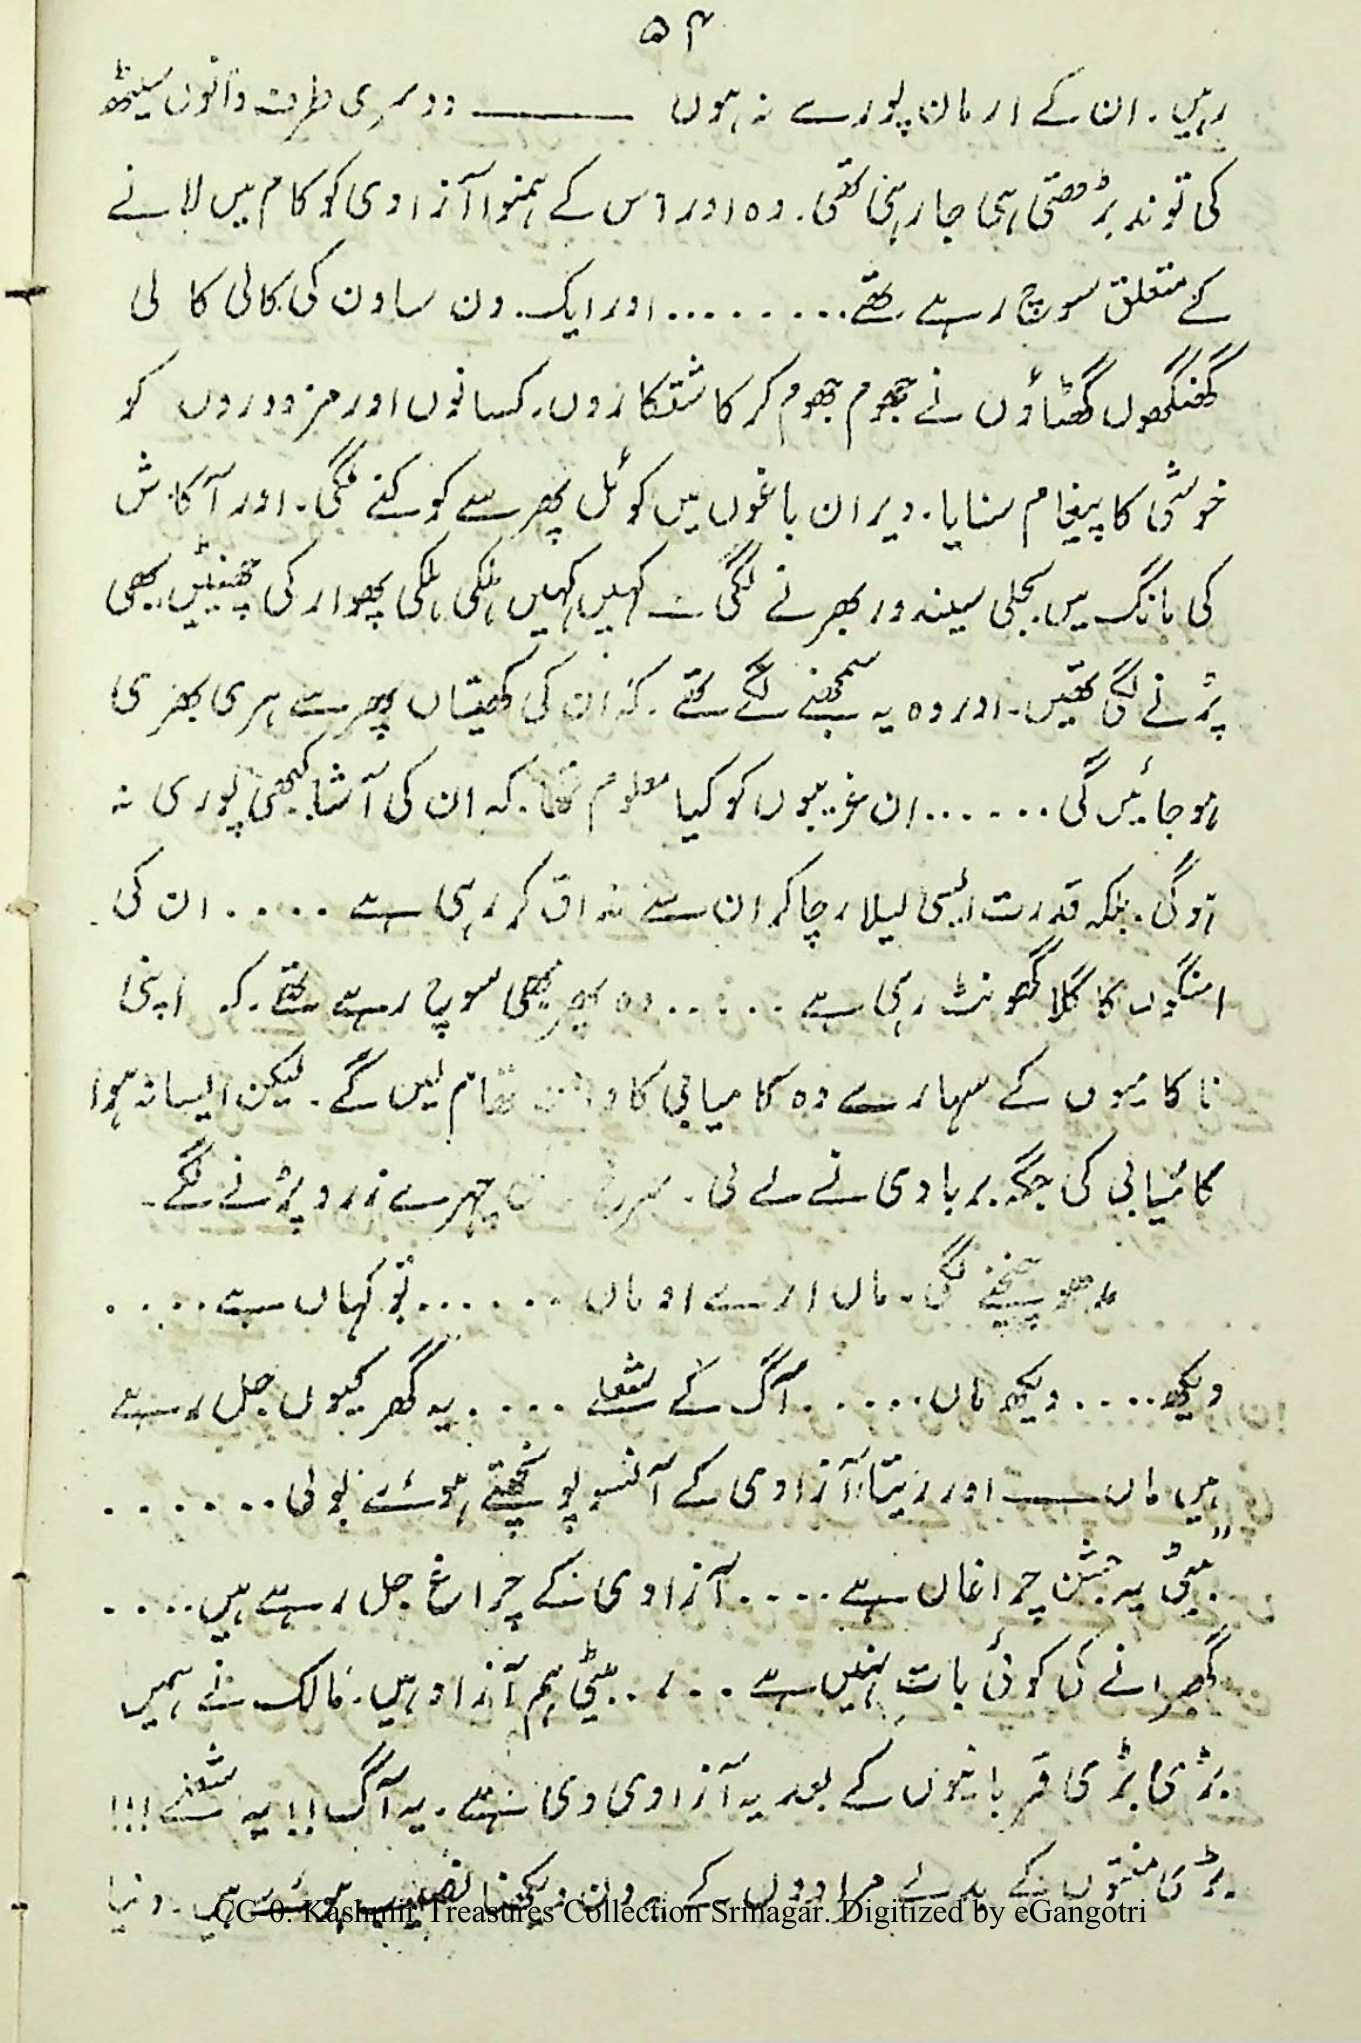 ۵۴
رہیں۔ ان کے ارمان پورے نہ ہوں ——— دوسری طرف دانوں سیٹھ
کی توند بڑھتی ہی جا رہی تھی۔ وہ اور اس کے ہمنوا آزادی کو کام میں لانے
کے متعلق سوچ رہے تھے......... اور ایک دن ساون کی کالی کالی
گھنگھور گھٹاؤں نے جھوم جھوم کر کاشتکاروں۔ کسانوں اور مزدوروں کو
خوشی کا پیغام سنایا۔ ویران باغوں میں کوئل پھر سے کوکنے لگی۔ اور آکاش
کی مانگ میں بجلی سیندور بھرنے لگی — کہیں کہیں ہلکی ہلکی پھوار کی چھنٹیں بھی
پڑنے لگی تھیں۔ اور وہ یہ سمجھنے لگے تھے۔ کہ ان کی کھیتاں پھر سے ہری بھری
ہو جائیں گی ...... ان غریبوں کو کیا معلوم تھا۔ کہ ان کی آشا کبھی پوری نہ
ہوگی۔ بلکہ قدرت ایسی لیلا رچا کر ان سے مذاق کر رہی ہے .... ان کی
امنگوں کا گلا گھونٹ رہی ہے ...... وہ پھر بھی سوچ رہے تھے۔ کہ اپنی
ناکامیوں کے سہارے وہ کامیابی کا دامن تھام لیں گے۔ لیکن ایسا نہ ہوا
کامیابی کی جگہ بربادی نے لے لی۔ سرخ چہرے زرد پڑنے لگے۔
مدھو چیخنے لگی۔ ماں ارے او ماں ...... تو کہاں ہے ....
دیکھ .... دیکھ ماں ...... آگ کے شعلے .... یہ گھر کیوں جل رہے
ہیں ماں — اور زیتا آزادی کے آنسو پونچھتے ہوئے بولی ......
"بیٹی یہ جشن چراغاں ہے .... آزادی کے چراغ جل رہے ہیں ....
گھبرانے کی کوئی بات نہیں ہے .... بیٹی ہم آزاد ہیں۔ مالک نے ہمیں
بڑی بڑی قربانیوں کے بعد یہ آزادی دی ہے۔ یہ آگ!! یہ شعلے!!!
بڑی منتوں کے بدلے مرادوں کے یہ دن دیکھنا نصیب ہوئے ہیں۔ دنیا
CC-0. Kashmir Treasures Collection Srinagar. Digitized by eGangotri